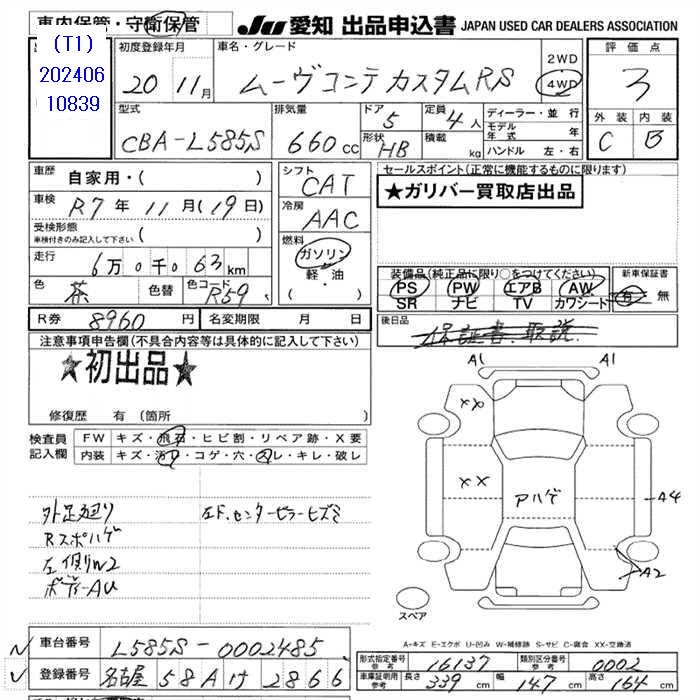 車内保管・守衛保管
JU 愛知 出品申込書 JAPAN USED CAR DEALERS ASSOCIATION
(T1)
202406
10839
初度登録年月
20年 11月
車名・グレード
ムーヴコンテ カスタムRS
2WD
4WD
評価点
3
型式
CBA-L585S
排気量
660 cc
ドア
5
形状
HB
定員
4人
積載
kg
ディーラー・並行
モデル年式 年
ハンドル 左・右
外装 内装
C B
車歴 自家用・( )
車検 R7年 11月(19日)
受検形態
車検付きのみ記入して下さい ( )
走行 6万0千063km
色 茶 色替 色コード R59
シフト
CAT
冷房
AAC
燃料
ガソリン
軽・油
( )
セールスポイント(正常に機能するものに限ります)
★ガリバー買取店出品
装備品(純正品に限り○をつけてください) 新車保証書
PS PW エアB AW
SR ナビ TV カワシート
有 無
R券 8960円 名変期限 月 日
後日品 保証書、取説
注意事項申告欄(不具合内容等は具体的に記入して下さい)
★初出品★
修復歴 有(箇所
検査員記入欄
FW キズ・飛石・ヒビ割・リペア跡・X要
内装 キズ・汚レ・コゲ・穴・スレ・キレ・破レ
外足廻り
Rスポハゲ
左側りW2
ボデーAU
左F.センターピラーヒズミ
A1 A1
XX
XX
アハゲ
A4
A2
スペア
A-キズ E-エクボ U-凹み W-補修跡 S-サビ C-腐食 XX-交換済
車台番号 L585S-0002485
登録番号 名古屋 58A け 2866
形式指定番号参考 16137 類別区分番号参考 0002
車庫証明用参考 長さ 339 cm 幅 147 cm 高さ 164 cm